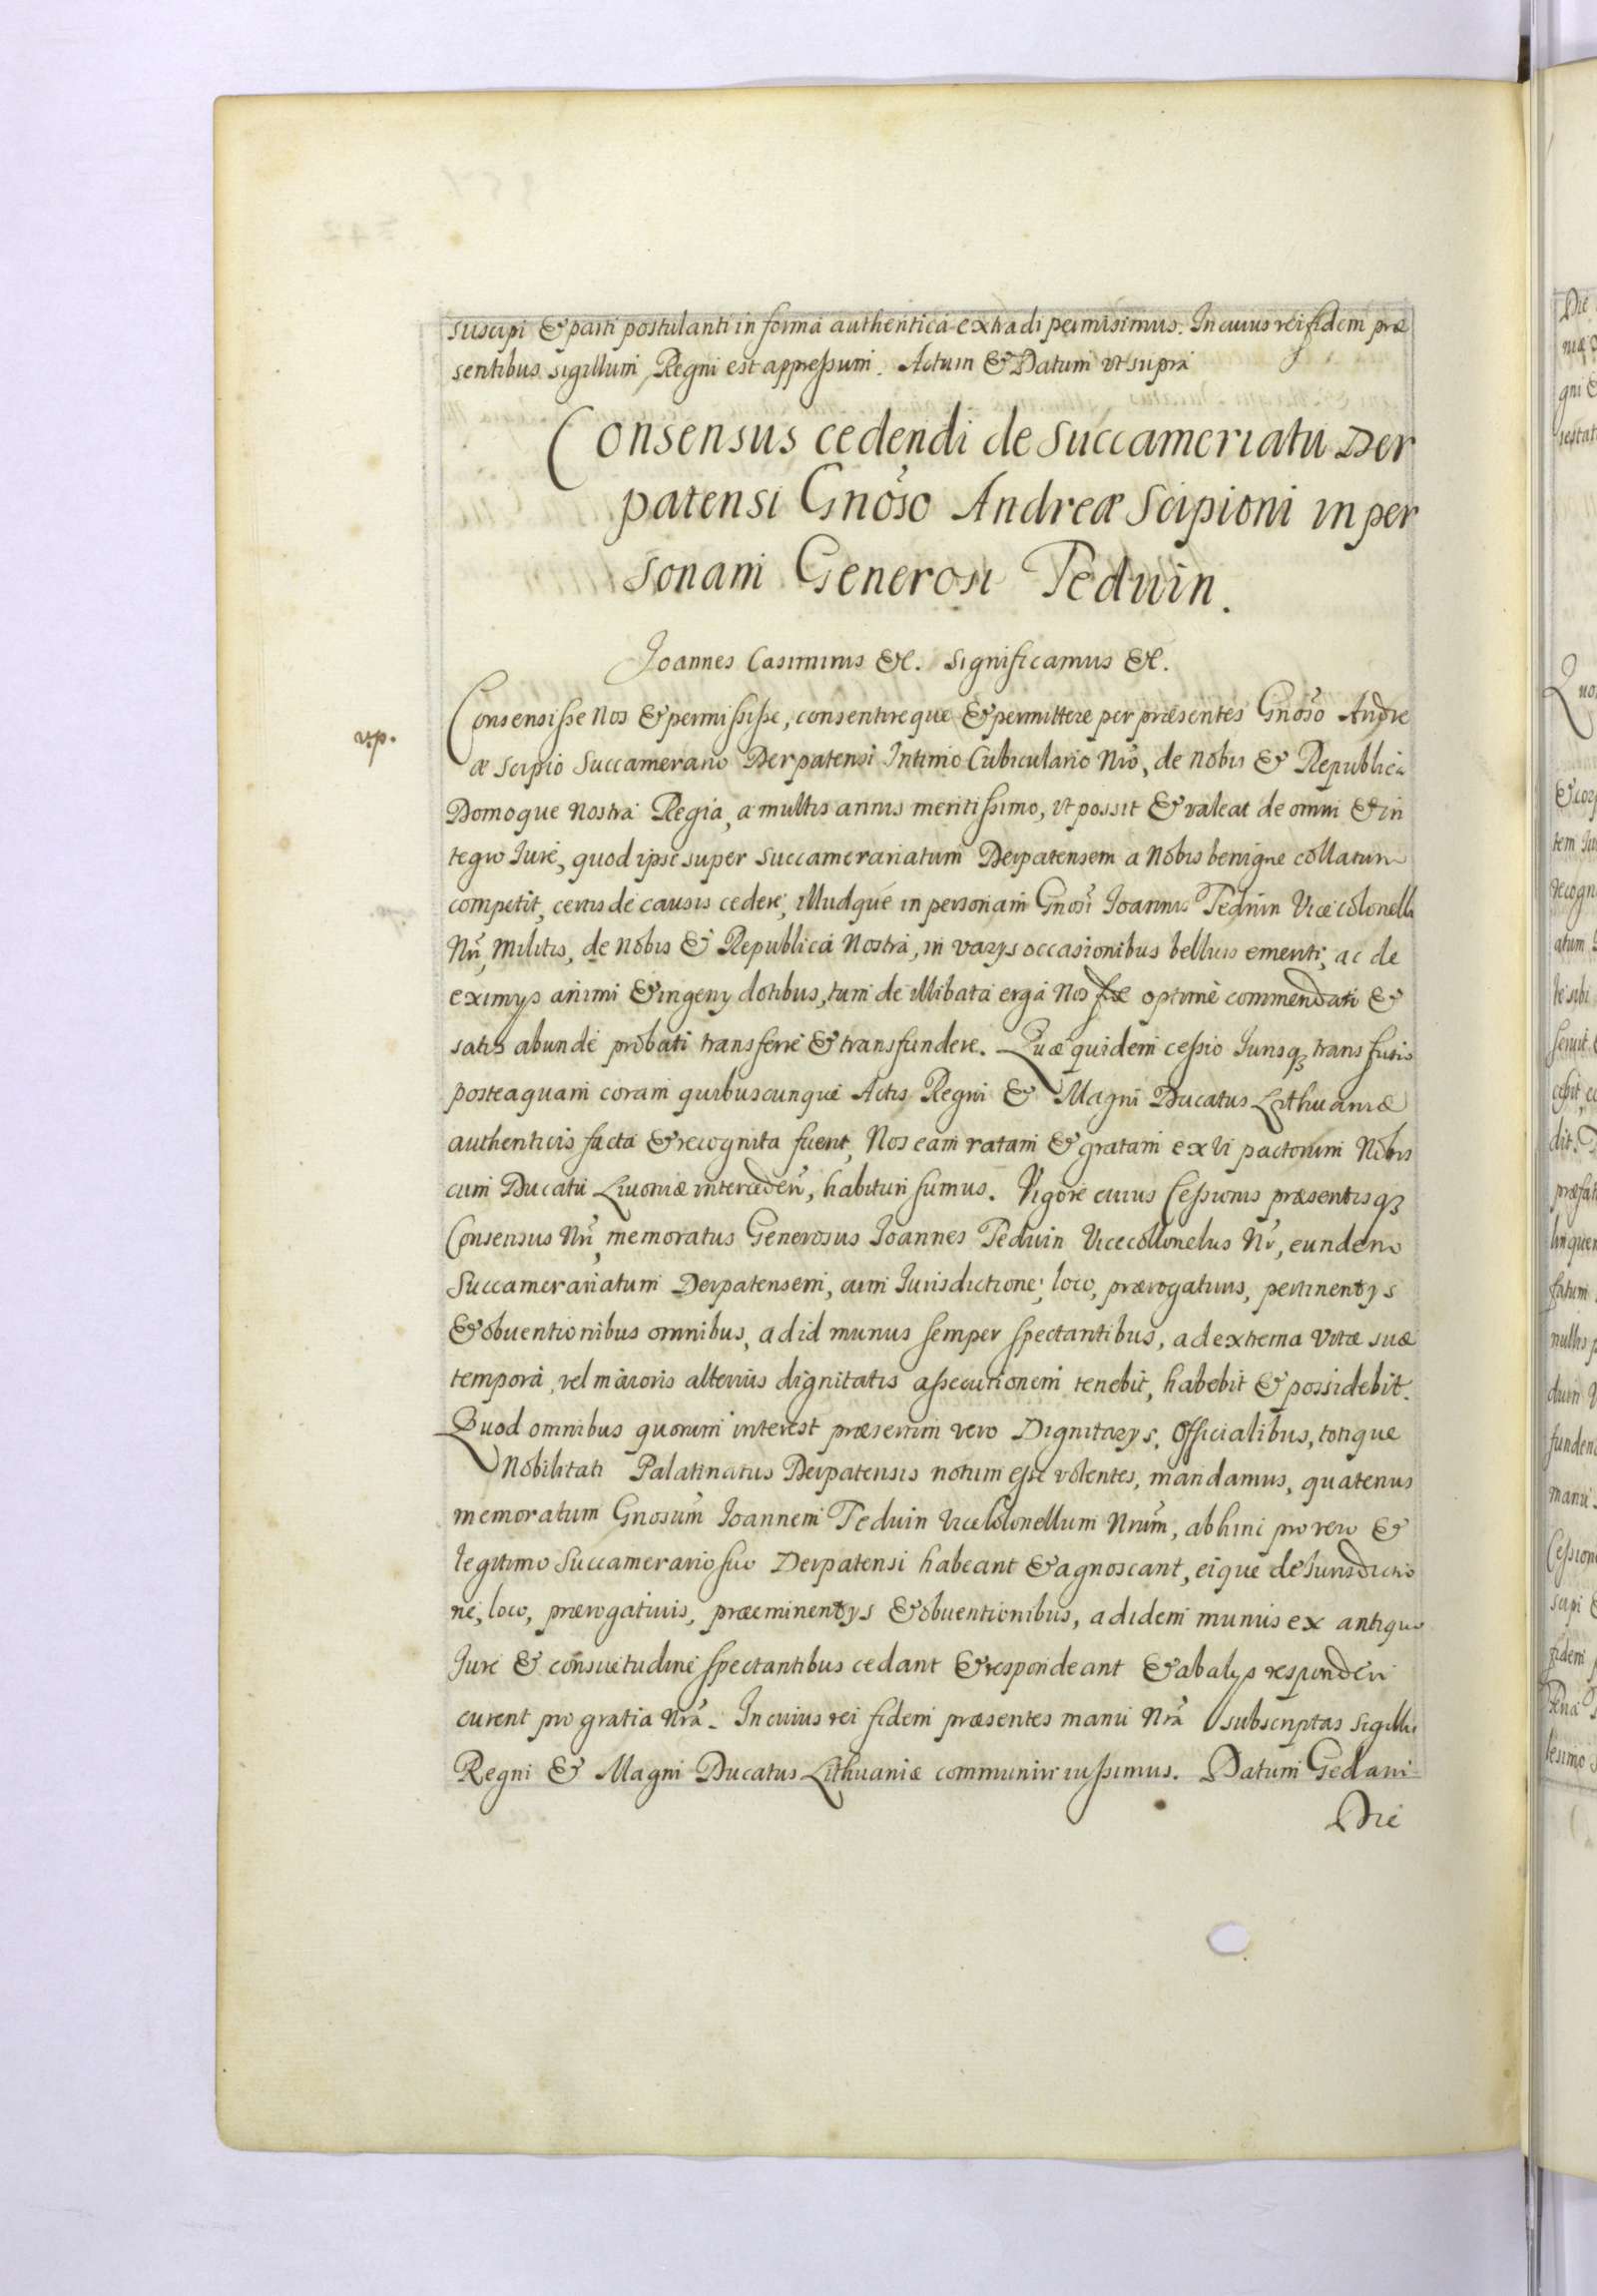 suscipi & parti postulanti in forma authentica extradi permisimus. In cuius rei fidem præ
sentibus sigillum Regni est appressum. Actum & Datum ut supra
Consensus cedendi de Succameriatu Der
patensi Gnōso Andreæ Scipioni in per
sonam Generosi Teduin.
Joannes Casimirus &c. significamus &c.
Consensisse Nos & permisisse, consentireque & permittere per præsentes Gnōso Andre
æ Scipio Succamerario Derpatensi Intimo Cubiculario Nro, de nobis & Republica
Domoque nostra Regia, a multis annis meritissimo, ut possit & valeat de omni & in
tegro Jure, quod ipse super Succamerariatum Derpatensem a Nobis benigne collatum
competit, certis de causis cedere, illudque in personam Gnosi Joannis Teduin Vice colonelli
Nri, Militis, de nobis & Republica Nostra, in varys occasionibus bellicis emeriti, ac de
eximys animi & ingeny dotibus, tum de illibata erga Nos fide optime commendati &
satis abunde probati transferre & transfundere. Quæ quidem cessio Jurisq3 transfusio
posteaquam coram quibuscunque Actis Regni & Magni Ducatus Lithuaniæ
authenticis facta & recognita fuerit, Nos eam ratam & gratam ex vi pactorum Nobis
cum Ducatu Livoniæ interceden̄, habituri sumus. Vigore cuius Cessionis præsentisq3
Consensus Nri, memoratus Generosus Joannes Teduin Vicecollonelus Nr, eundem
Succamerariatum Derpatensem, cum Jurisdictione, loco, prærogativis, pertinentys
& obventionibus omnibus, ad id munus semper spectantibus, ad extrema vitæ suæ
tempora, vel maioris alterius dignitatis assecutionem tenebit, habebit & possidebit.
Quod omnibus quorum interest præsertim vero Dignitarys, Officialibus, totique
Nobilitati Palatinatus Derpatensis notum esse volentes, mandamus, quatenus
memoratum Gnosum Joannem Teduin Vicecolonellum Nrum, abhinc pro vero &
legitimo Succamerario suo Derpatensi habeant & agnoscant, eique de Jurisdictio
ne, loco, prærogativis, præeminentys & obventionibus, ad idem munus ex antiquo
Jure & consuetudine spectantibus cedant & respondeant & ab alys responderi
curent pro gratia Nrā. In cuius rei fidem præsentes manu Nrā subscriptas Sigillis
Regni & Magni Ducatus Lithuaniæ communiri iussimus. Datum Gedani
Die